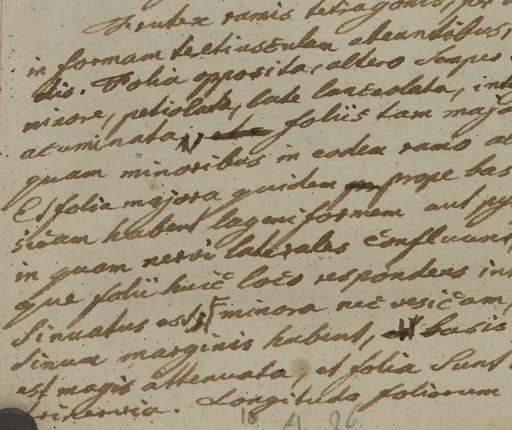 Frutex ramis tetragonis,
in formam
dis. Folia opposita, altero semper
minore, petiolata, late lanceolata, int
acuminata, foliis tam majo
quam minoribus in eodem ramo
Et folia majora quidem prope bas
sicam habent lageniformem aut py
in quam nervi laterales confluunt,
que folii huic loco respondens in
sinuatus est, minora nec vesicam,
sinum marginis habent, basis
est magis attenuata, et folia sunt
trinervia. Longitudo foliorum